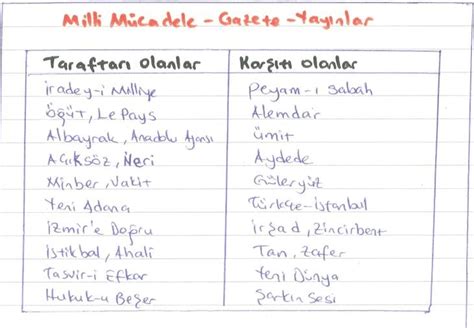 Milli Mücadele - Gazete - Yayınlar
Taraftarı olanlar Karşıtı olanlar
İradey-i Milliye Peyam-ı Sabah
Öğüt, Le Pays Alemdar
Albayrak, Anadolu Ajansı Ümit
Açıksöz, İleri Aydede
Minber, Vakit Güleryüz
Yeni Adana Türkçe-İstanbul
İzmir'e Doğru İrşad, Zincirbent
İstikbal, Ahali Tan, Zafer
Tasvir-i Efkar Yeni Dünya
Hukuk-u Beşer Şarkın Sesi